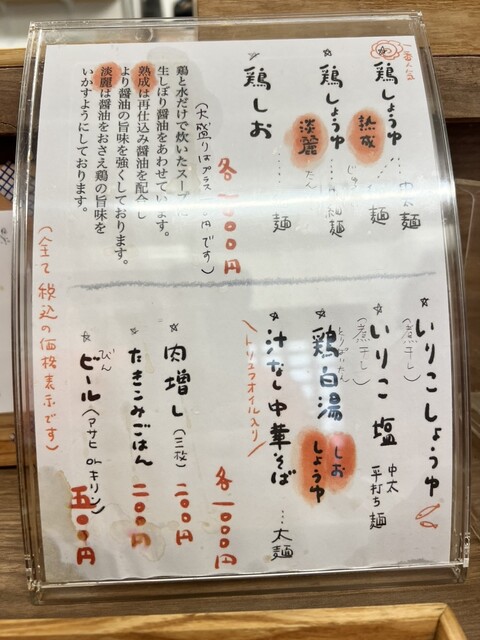 一番人気
鶏しょうゆ 熟成 …中太麺
鶏しょうゆ 淡麗 …細麺
たん
鶏しお …麺
各一〇〇〇円
(大盛りはプラス 円です)
鶏と水だけで炊いたスープに
生しぼり醤油をあわせています。
熟成は再仕込み醤油を配合し
より醤油の旨味を強くしております。
淡麗は醤油をおさえ鶏の旨味を
いかすようにしております。
いりこしょうゆ
(煮干し)
いりこ塩 中太平打ち麺
(煮干し)
鶏白湯 しお しょうゆ
とりぱいたん
汁なし中華そば …太麺
トリュフオイル入り
各一〇〇〇円
肉増し(三枚) 二〇〇円
たきこみごはん 二〇〇円
びん
ビール(アサヒ orキリン) 五〇〇円
(全て税込の価格表示です)